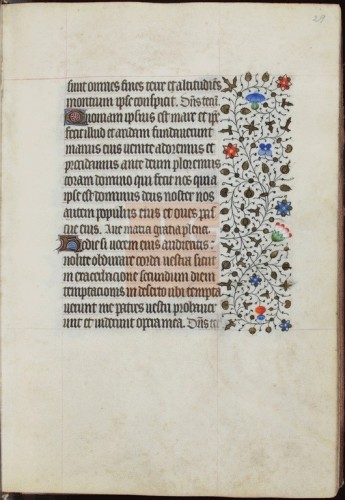 29
sunt omnes fines terre et altitudines
montium ipse conspicit. Dñs tecũ.
Quoniam ipsius est mare et ipse
fecit illud et aridam fundaverunt
manus eius venite adoremus et
procidamus ante deum ploremus
coram domino qui fecit nos quia
ipse est dominus deus noster nos
autem populus eius et oves pas
cue eius. Ave maria gratia plena.
Hodie si vocem eius audieritis:
nolite obdurare corda vestra sicut
in exacerbacione secundum diem
temptacionis in deserto ubi tempta
verunt me patres vestri probaver
unt et viderunt opera mea. Dñs tecũ